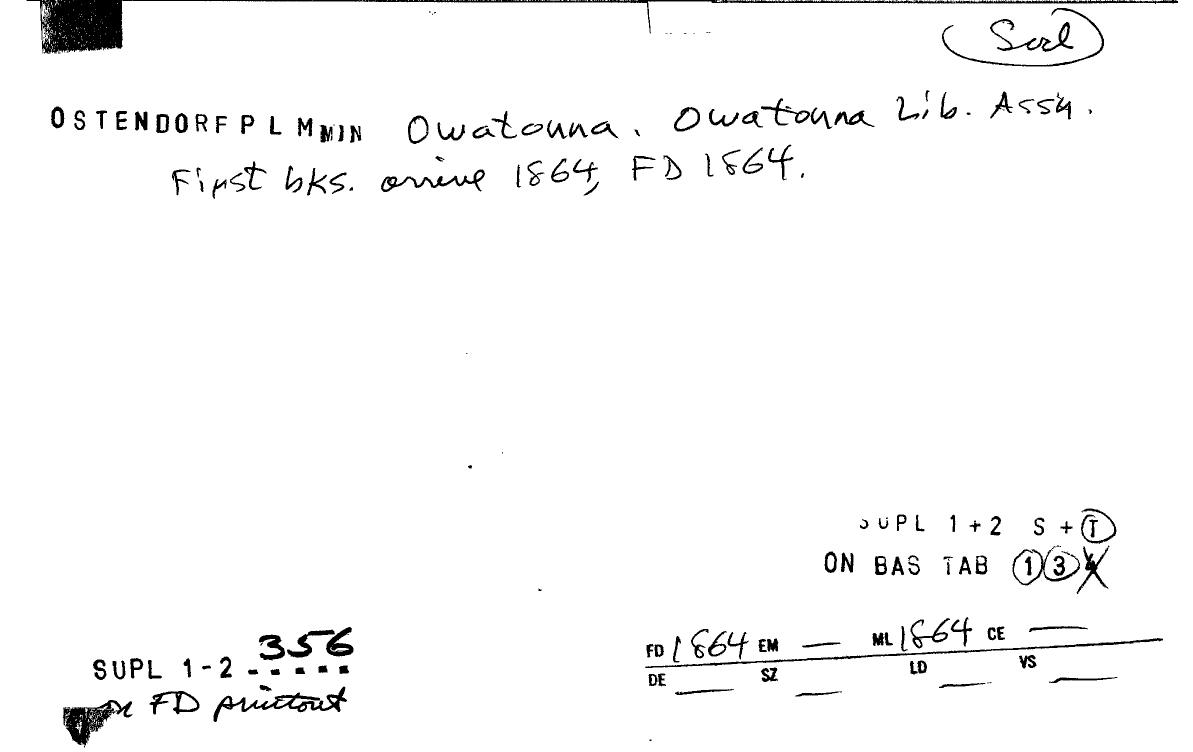 Socl
OSTENDORF P L M MIN Owatonna. Owatonna Lib. Assn.
First bks. arrive 1864, FD 1864.
SUPL 1+2 S + T
ON BAS TAB 1 3 4
356
SUPL 1-2 -----
on FD printout
FD 1864 EM — ML 1864 CE —
DE — SZ — LD — VS —